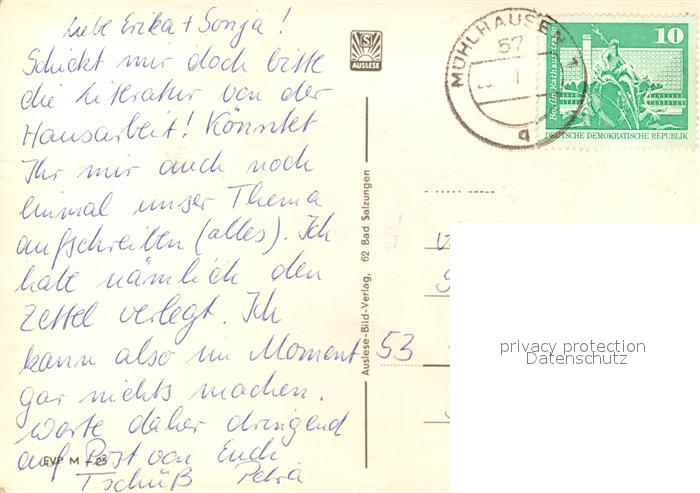 Liebe Erika + Sonja!
Schickt mir doch bitte
die Literatur von der
Hausarbeit! Könntet
Ihr mir auch noch
einmal unser Thema
aufschreiben (alles). Ich
habe nämlich den
Zettel verlegt. Ich
kann also im Moment
gar nichts machen.
Warte daher dringend
auf Post von Euch
Tschüß Petra
EVP M -,25
AUSLESE
Auslese-Bild-Verlag, 62 Bad Salzungen
MÜHLHAUSEN 1
57
a
10
Berlin, Rathausstraße
DEUTSCHE DEMOKRATISCHE REPUBLIK
53
privacy protection
Datenschutz